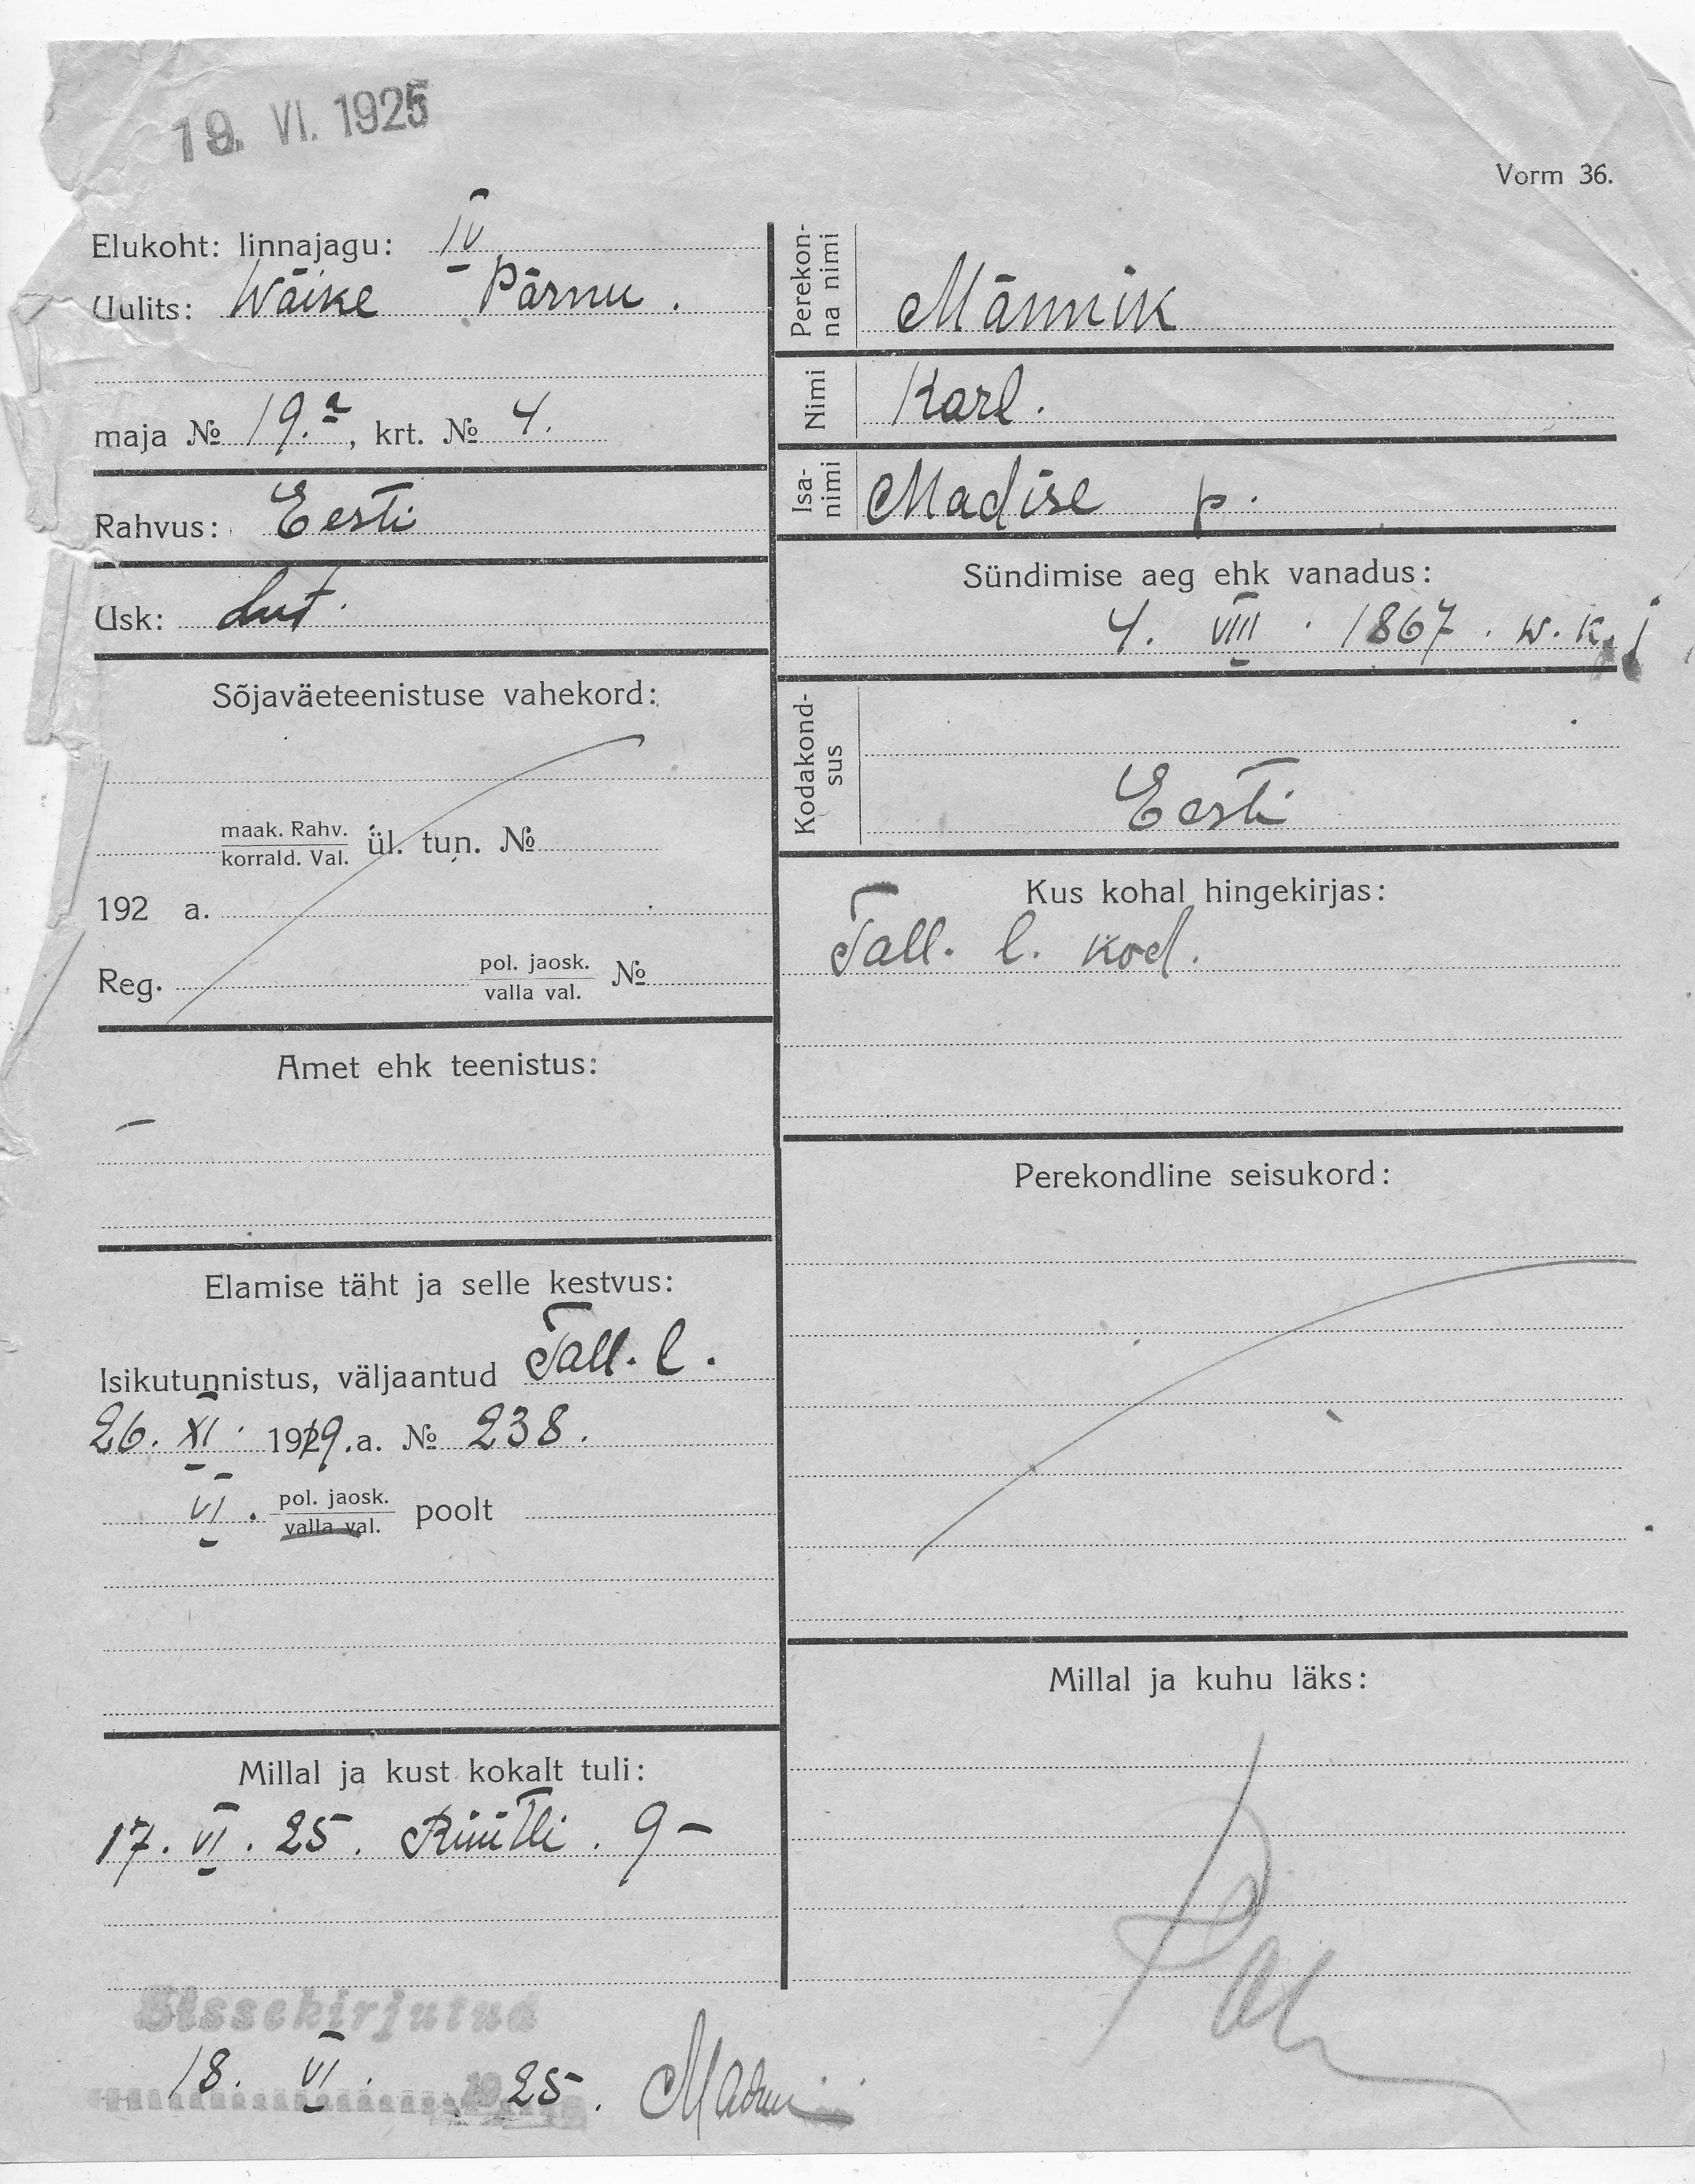 19. VI. 1925
Vorm 36.
Elukoht: linnajagu: IV
Uulits: Wäike Pärnu.
maja № 19.a, krt. № 4.
Rahvus: Eesti
Usk: Lut.
Sõjaväeteenistuse vahekord:
maak. Rahv.
korrald. Val. ül. tun. №
192 a.
Reg. pol. jaosk. №
valla val.
Amet ehk teenistus:
–
Elamise täht ja selle kestvus:
Isikutunnistus, väljaantud Tall. l.
26. XI. 1919.a. № 238.
VI. pol. jaosk. poolt
valla val.
Millal ja kust kokalt tuli:
17. VI. 25. Rüütli. 9 –
Sissekirjutud
18. VI. 1925.
Perekon-
na nimi
Männik
Nimi
Karl.
Isa-
nimi
Madise p.
Sündimise aeg ehk vanadus:
4. VIII. 1867. w. k. j
Kodakond-
sus
Eesti
Kus kohal hingekirjas:
Tall. l. kod.
Perekondline seisukord:
Millal ja kuhu läks: